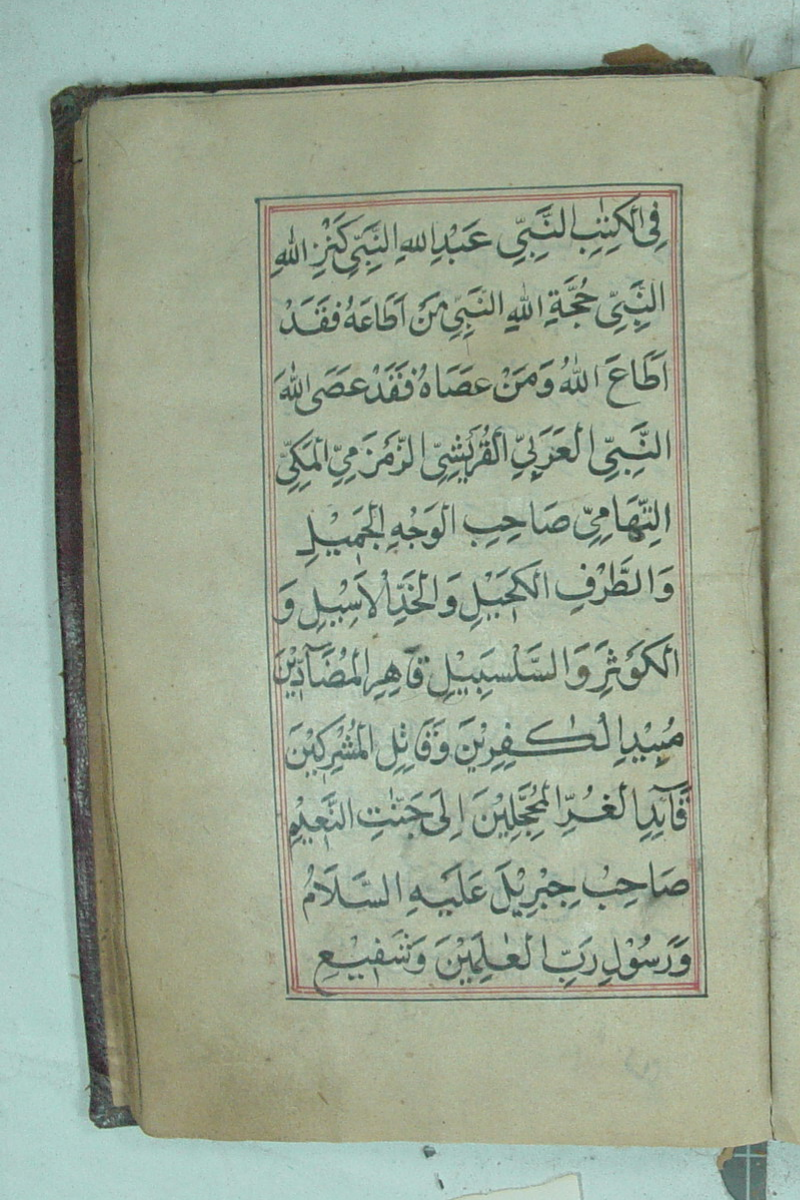 فِي الْكِتٰبِ النَّبِيِّ عَبْدِ اللهِ النَّبِيِّ كَنْزِ اللهِ
النَّبِيِّ حُجَّةِ اللهِ النَّبِيِّ مَنْ اَطَاعَهُ فَقَدْ
اَطَاعَ اللهُ وَمَنْ عَصَاهُ فَقَدْ عَصَى اللهَ
النَّبِيِّ الْعَرَبِيِّ الْقُرَيْشِيِّ الزَّمْزَمِيِّ الْمَكِّيِّ
التِّهَامِيِّ صَاحِبِ الْوَجْهِ الْجَمِيْلِ
وَالطَّرْفِ الْكَحِيْلِ وَالْخَدِّ الْاَسِيْلِ وَ
الْكَوْثَرِ وَالسَّلْسَبِيْلِ قَاهِرِ الْمُضَآدِّيْنَ
مُبِيْدِ الْكٰفِرِيْنَ وَقَاتِلِ الْمُشْرِكِيْنَ
قَآئِدِ الْغُرِّ الْمُحَجَّلِيْنَ اِلٰى جَنّٰتِ النَّعِيْمِ
صَاحِبِ جِبْرِيْلَ عَلَيْهِ السَّلَامُ
وَرَسُوْلِ رَبِّ الْعٰلَمِيْنَ وَشَفِيْعِ